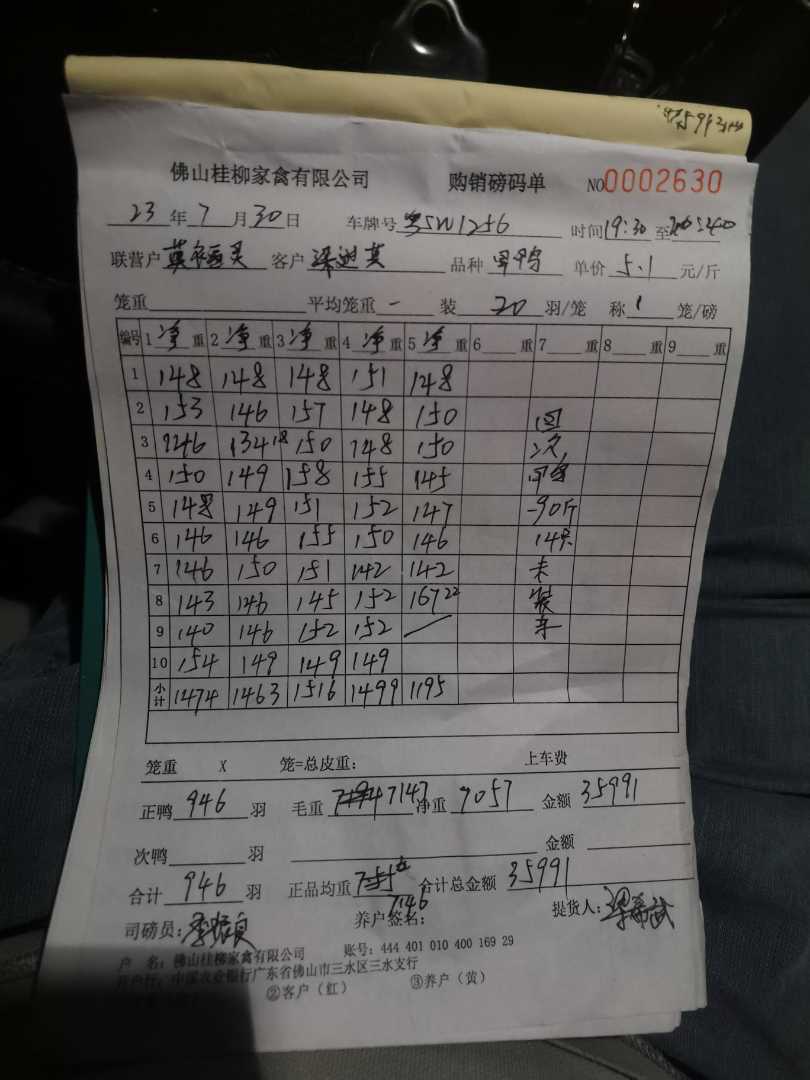 佛山桂柳家禽有限公司 购销磅码单 NO0002630
23年7月30日 车牌号 5W1256 时间19:30至
联营户 客户 品种 单价5.1元/斤
笼重 平均笼重 一 装 20 羽/笼 称 1 笼/磅
编号 1净重 2净重 3净重 4净重 5净重 6 重 7 重 8 重 9 重
1 148 148 148 151 148
2 153 146 157 148 150 回
3 146 134 18 150 148 150 次
4 150 149 158 155 145
5 148 149 151 152 147 -90斤
6 146 146 155 150 146 14只
7 146 150 151 142 142 未
8 143 146 145 152 167 22 装
9 140 146 152 152 车
10 154 149 149 149
小计 1474 1463 1516 1499 1195
笼重 X 笼=总皮重: 上车费
正鸭 946 羽 毛重 7147 净重 7057 金额 35991
次鸭 羽 金额
合计 946 羽 正品均重 合计总金额 35991
7.46
司磅员: 养户签名: 提货人:
户 名: 佛山桂柳家禽有限公司 账号: 444 401 010 400 169 29
开户行: 中国农业银行广东省佛山市三水区三水支行
②客户(红) ③养户(黄)